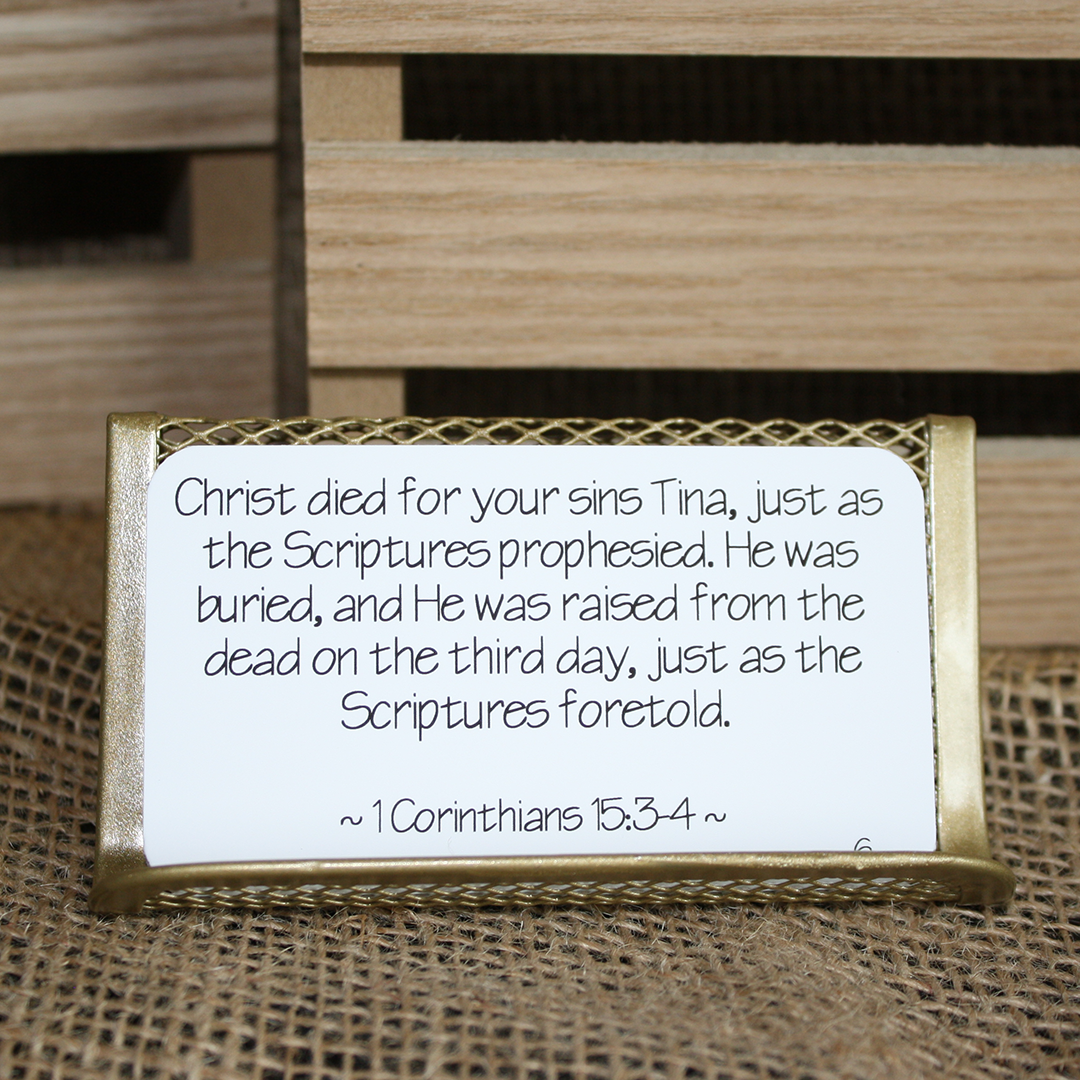 Christ died for your sins Tina, just as
the Scriptures prophesied. He was
buried, and He was raised from the
dead on the third day, just as the
Scriptures foretold.
~ 1 Corinthians 15:3-4 ~